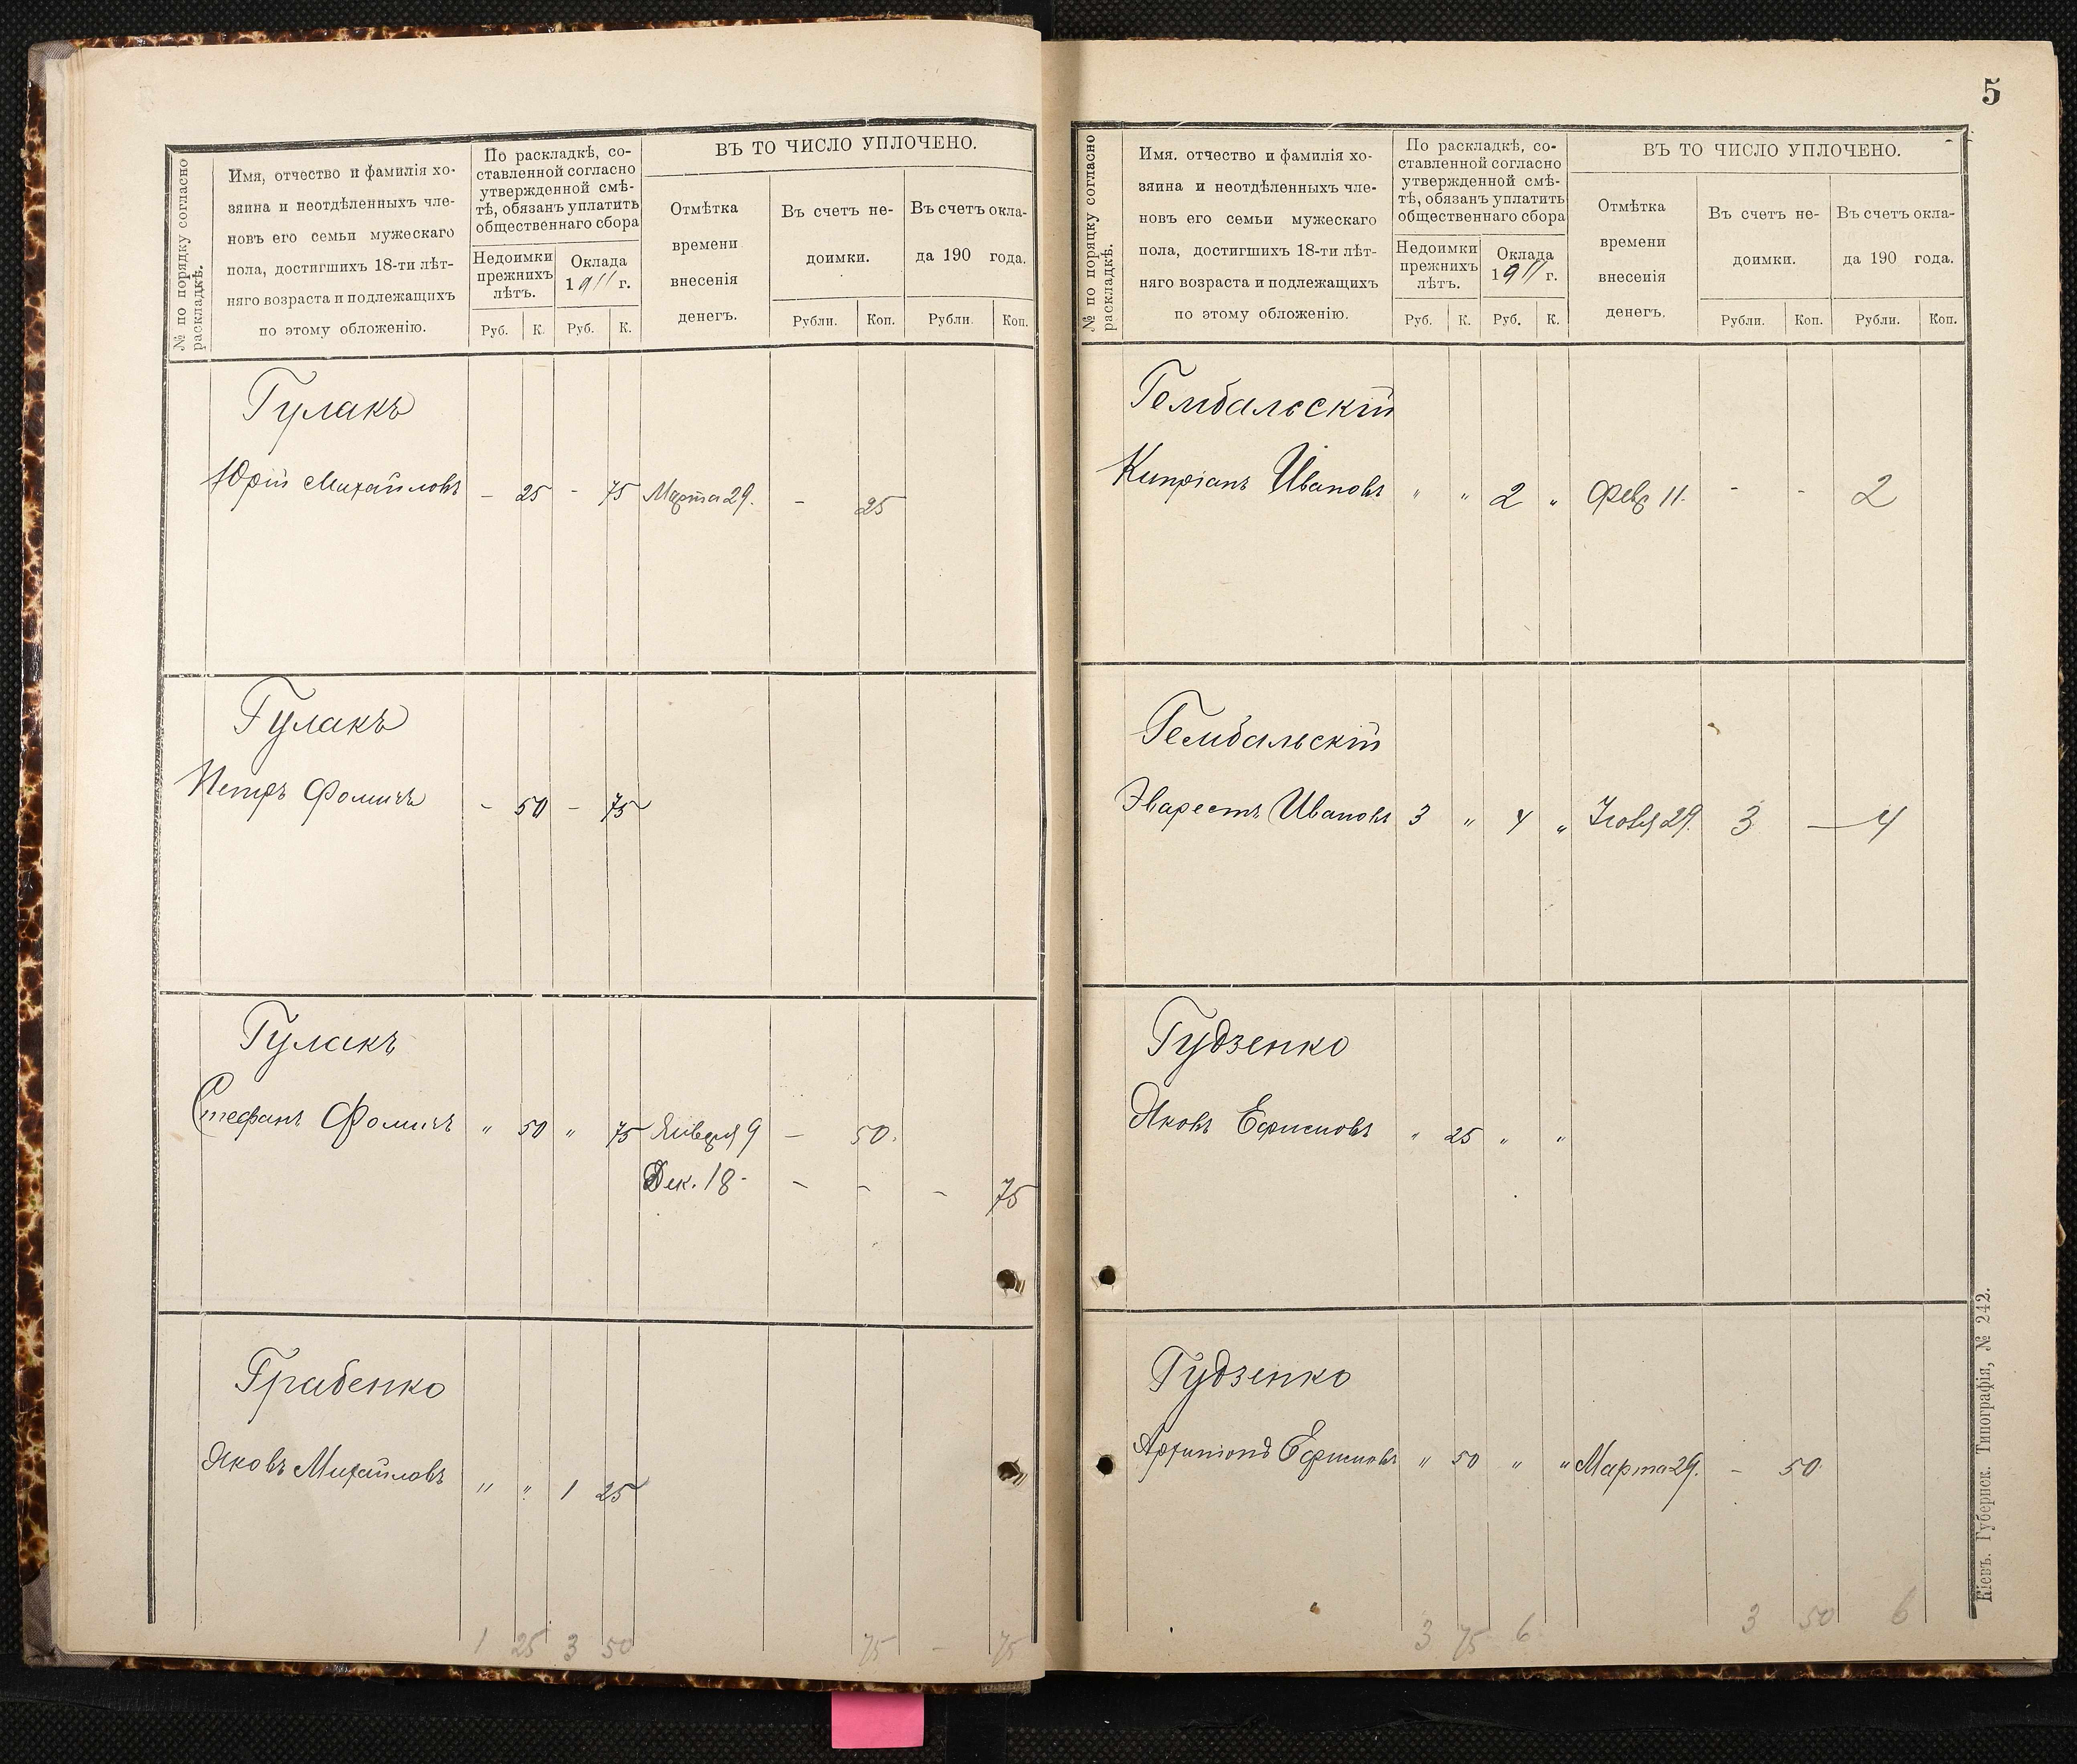 № по порядку согласно раскладкѣ.
Имя, отчество и фамилія хо-
зяина и неотдѣленныхъ чле-
новъ его семьи мужескаго
пола, достигшихъ 18-ти лѣт-
няго возраста и подлежащихъ
по этому обложенію.
По раскладкѣ, со-
ставленной согласно
утвержденной смѣ-
тѣ, обязанъ уплатить
общественнаго сбора
Недоимки прежнихъ лѣтъ.
Оклада 1911 г.
Руб. К. Руб. К.
ВЪ ТО ЧИСЛО УПЛОЧЕНО.
Отмѣтка
времени
внесенія
денегъ.
Въ счетъ не-
доимки.
Рубли. Коп.
Въ счетъ окла-
да 190 года.
Рубли. Коп.
Гулакъ
Юрій Михайловъ - 25 - 75 Марта 29. - 25
Гулакъ
Петръ Фомичъ - 50 - 75
Гулакъ
Стефанъ Фомичъ " 50 " 75 Января 9 - 50.
Дек. 18- - - - 75
Грабенко
Яковъ Михайловъ " " 1 25
1 25 3 50 75 - 75
5
№ по поряцку согласно раскладкѣ.
Имя. отчество и фамилія хо-
зяина и неотдѣленныхъ чле-
новъ его семьи мужескаго
пола, достигшихъ 18-ти лѣт-
няго возраста и подлежащихъ
по этому обложенію.
По раскладкѣ, со-
ставленной согласно
утвержденной смѣ-
тѣ, обязанъ уплатить
общественнаго сбора
Недоимки прежнихъ лѣтъ.
Оклада 1911 г.
Руб. К. Руб. К.
ВЪ ТО ЧИСЛО УПЛОЧЕНО.
Отмѣтка
времени
внесенія
денегъ.
Въ счетъ не-
доимки.
Рубли. Коп.
Въ счетъ окла-
да 190 года.
Рубли. Коп.
Гембальскій
Кипріанъ Ивановъ " " 2 " Февр 11. - - 2
Гембальскій
Эварестъ Ивановъ 3 " 4 " 29. 3 — 4
Гудзенко
Яковъ Ефимовъ " 25 " "
Гудзенко
Ефимовъ " 50 " " Марта 29. - 50.
3 75 6 3 50 6
Кіевъ. Губернск. Типографія, № 242.